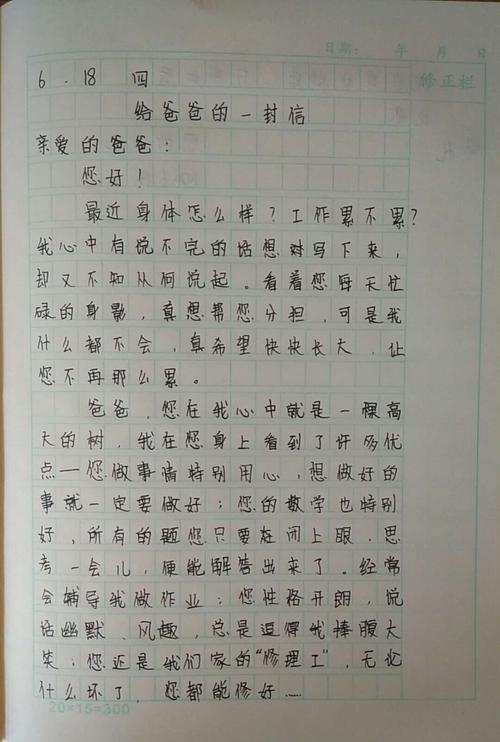 日期: 年 月 日
修正栏
6.18 四
给爸爸的一封信
亲爱的爸爸:
您好!
最近身体怎么样?工作累不累?
我心中有说不完的话想对写下来,
却又不知从何说起。看着您每天忙
碌的身影,真想帮您分担,可是我
什么都不会,真希望快快长大,让
您不再那么累。
爸爸,您在我心中就是一棵高
大的树,我在您身上看到了许多优
点—您做事情特别用心,想做好的
事就一定要做好;您的数学也特别
好,所有的题您只要在闭上眼,思
考一会儿,便能解答出来了。经常
会辅导我做作业;您性格开朗,说
话幽默、风趣,总是逗得我捧腹大
笑;您还是我们家的“修理工”,无忆
什么坏了 您都能修好……
20×15=300